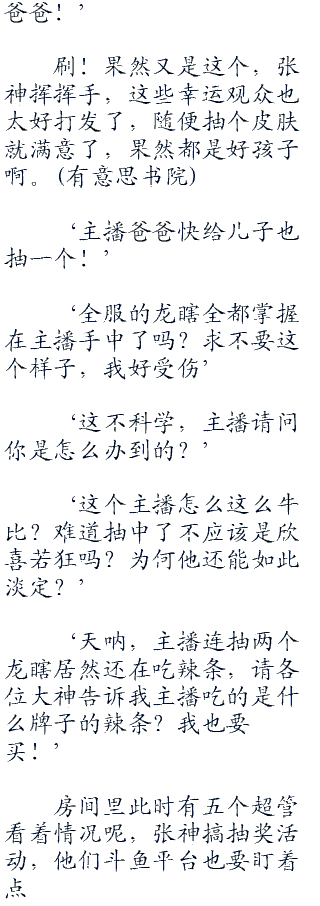 爸爸！’
刷！果然又是这个，张
神挥挥手，这些幸运观众也
太好打发了，随便抽个皮肤
就满意了，果然都是好孩子
啊。(有意思书院)
‘主播爸爸快给儿子也
抽一个！’
‘全服的龙瞎全都掌握
在主播手中了吗？求不要这
个样子，我好受伤’
‘这不科学，主播请问
你是怎么办到的？’
‘这个主播怎么这么牛
比？难道抽中了不应该是欣
喜若狂吗？为何他还能如此
淡定？’
‘天呐，主播连抽两个
龙瞎居然还在吃辣条，请各
位大神告诉我主播吃的是什
么牌子的辣条？我也要
买！’
房间里此时有五个超管
看着情况呢，张神搞抽奖活
动，他们斗鱼平台也要盯着
点